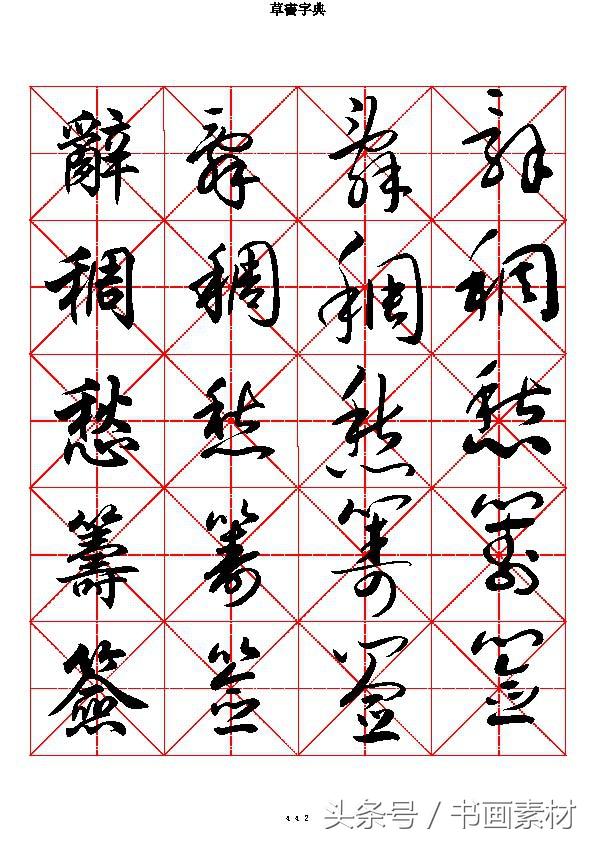 草書字典
辭 辭 辭 辭
稠 稠 稠 稠
愁 愁 愁 愁
籌 籌 籌 籌
簽 簽 簽 簽
442
头条号 / 书画素材